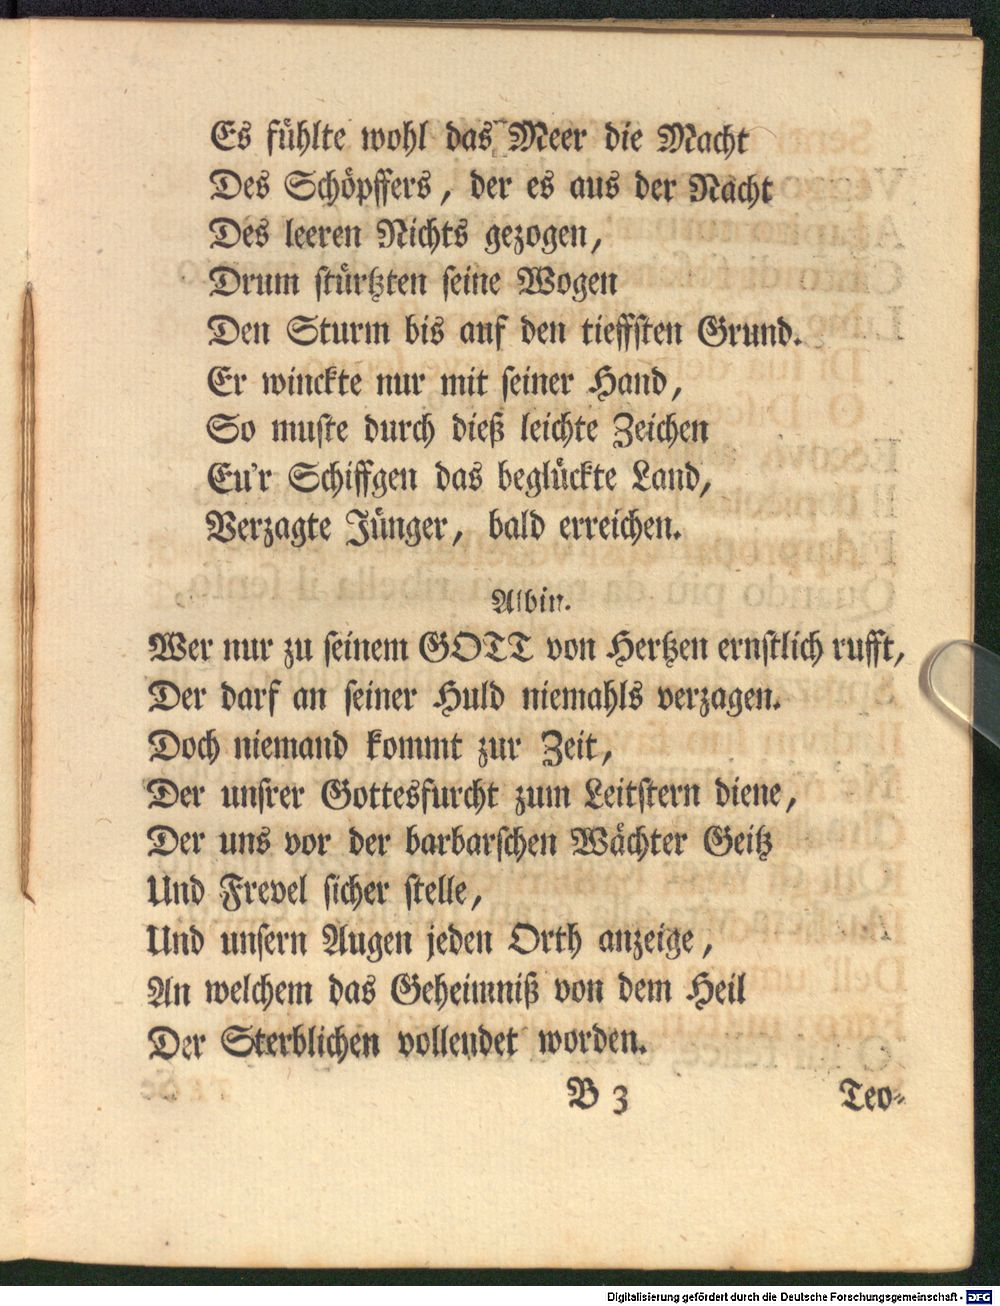 Es fühlte wohl das Meer die Macht
Des Schöpffers, der es aus der Nacht
Des leeren Nichts gezogen,
Drum stürtzten seine Wogen
Den Sturm bis auf den tieffsten Grund.
Er winckte nur mit seiner Hand,
So muste durch dieß leichte Zeichen
Eu'r Schiffgen das beglückte Land,
Verzagte Jünger, bald erreichen.
Albin.
Wer nur zu seinem GOTT von Hertzen ernstlich rufft,
Der darf an seiner Huld niemahls verzagen.
Doch niemand kommt zur Zeit,
Der unsrer Gottesfurcht zum Leitstern diene,
Der uns vor der barbarschen Wächter Geitz
Und Frevel sicher stelle,
Und unsern Augen jeden Orth anzeige,
An welchem das Geheimniß von dem Heil
Der Sterblichen vollendet worden.
B 3 Teo-
Digitalisierung gefördert durch die Deutsche Forschungsgemeinschaft - DFG